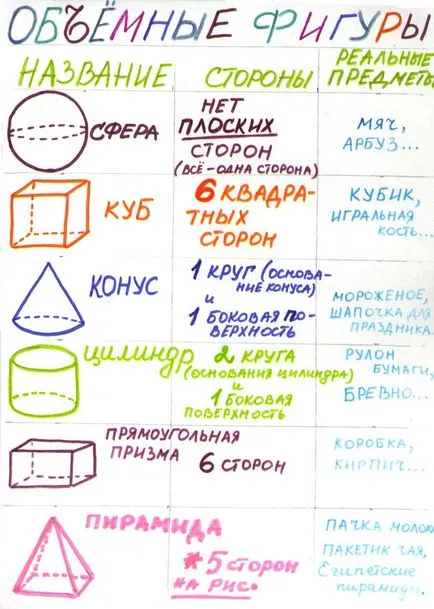 ОБЪЁМНЫЕ ФИГУРЫ
НАЗВАНИЕ
СТОРОНЫ
РЕАЛЬНЫЕ
ПРЕДМЕТЫ
СФЕРА
НЕТ
ПЛОСКИХ
СТОРОН
(ВСЁ-ОДНА СТОРОНА)
МЯЧ,
АРБУЗ...
КУБ
6 КВАДРА-
ТНЫХ
СТОРОН
КУБИК,
ИГРАЛЬНАЯ
КОСТЬ...
КОНУС
1 КРУГ (ОСНОВА-
НИЕ КОНУСА)
И
1 БОКОВАЯ ПО-
ВЕРХНОСТЬ
МОРОЖЕНОЕ,
ШАПОЧКА ДЛЯ
ПРАЗДНИКА.
ЦИЛИНДР
2 КРУГА
(ОСНОВАНИЯ ЦИЛИНДРА)
И
1 БОКОВАЯ
ПОВЕРХНОСТЬ
РУЛОН
БУМАГИ,
БРЕВНО...
ПРЯМОУГОЛЬНАЯ
ПРИЗМА
6 СТОРОН
КОРОБКА,
КИРПИЧ...
ПИРАМИДА
*5 СТОРОН
НА РИС.
ПАЧКА МОЛОК
ПАКЕТИК ЧАЯ,
ЕГИПЕТСКИЕ